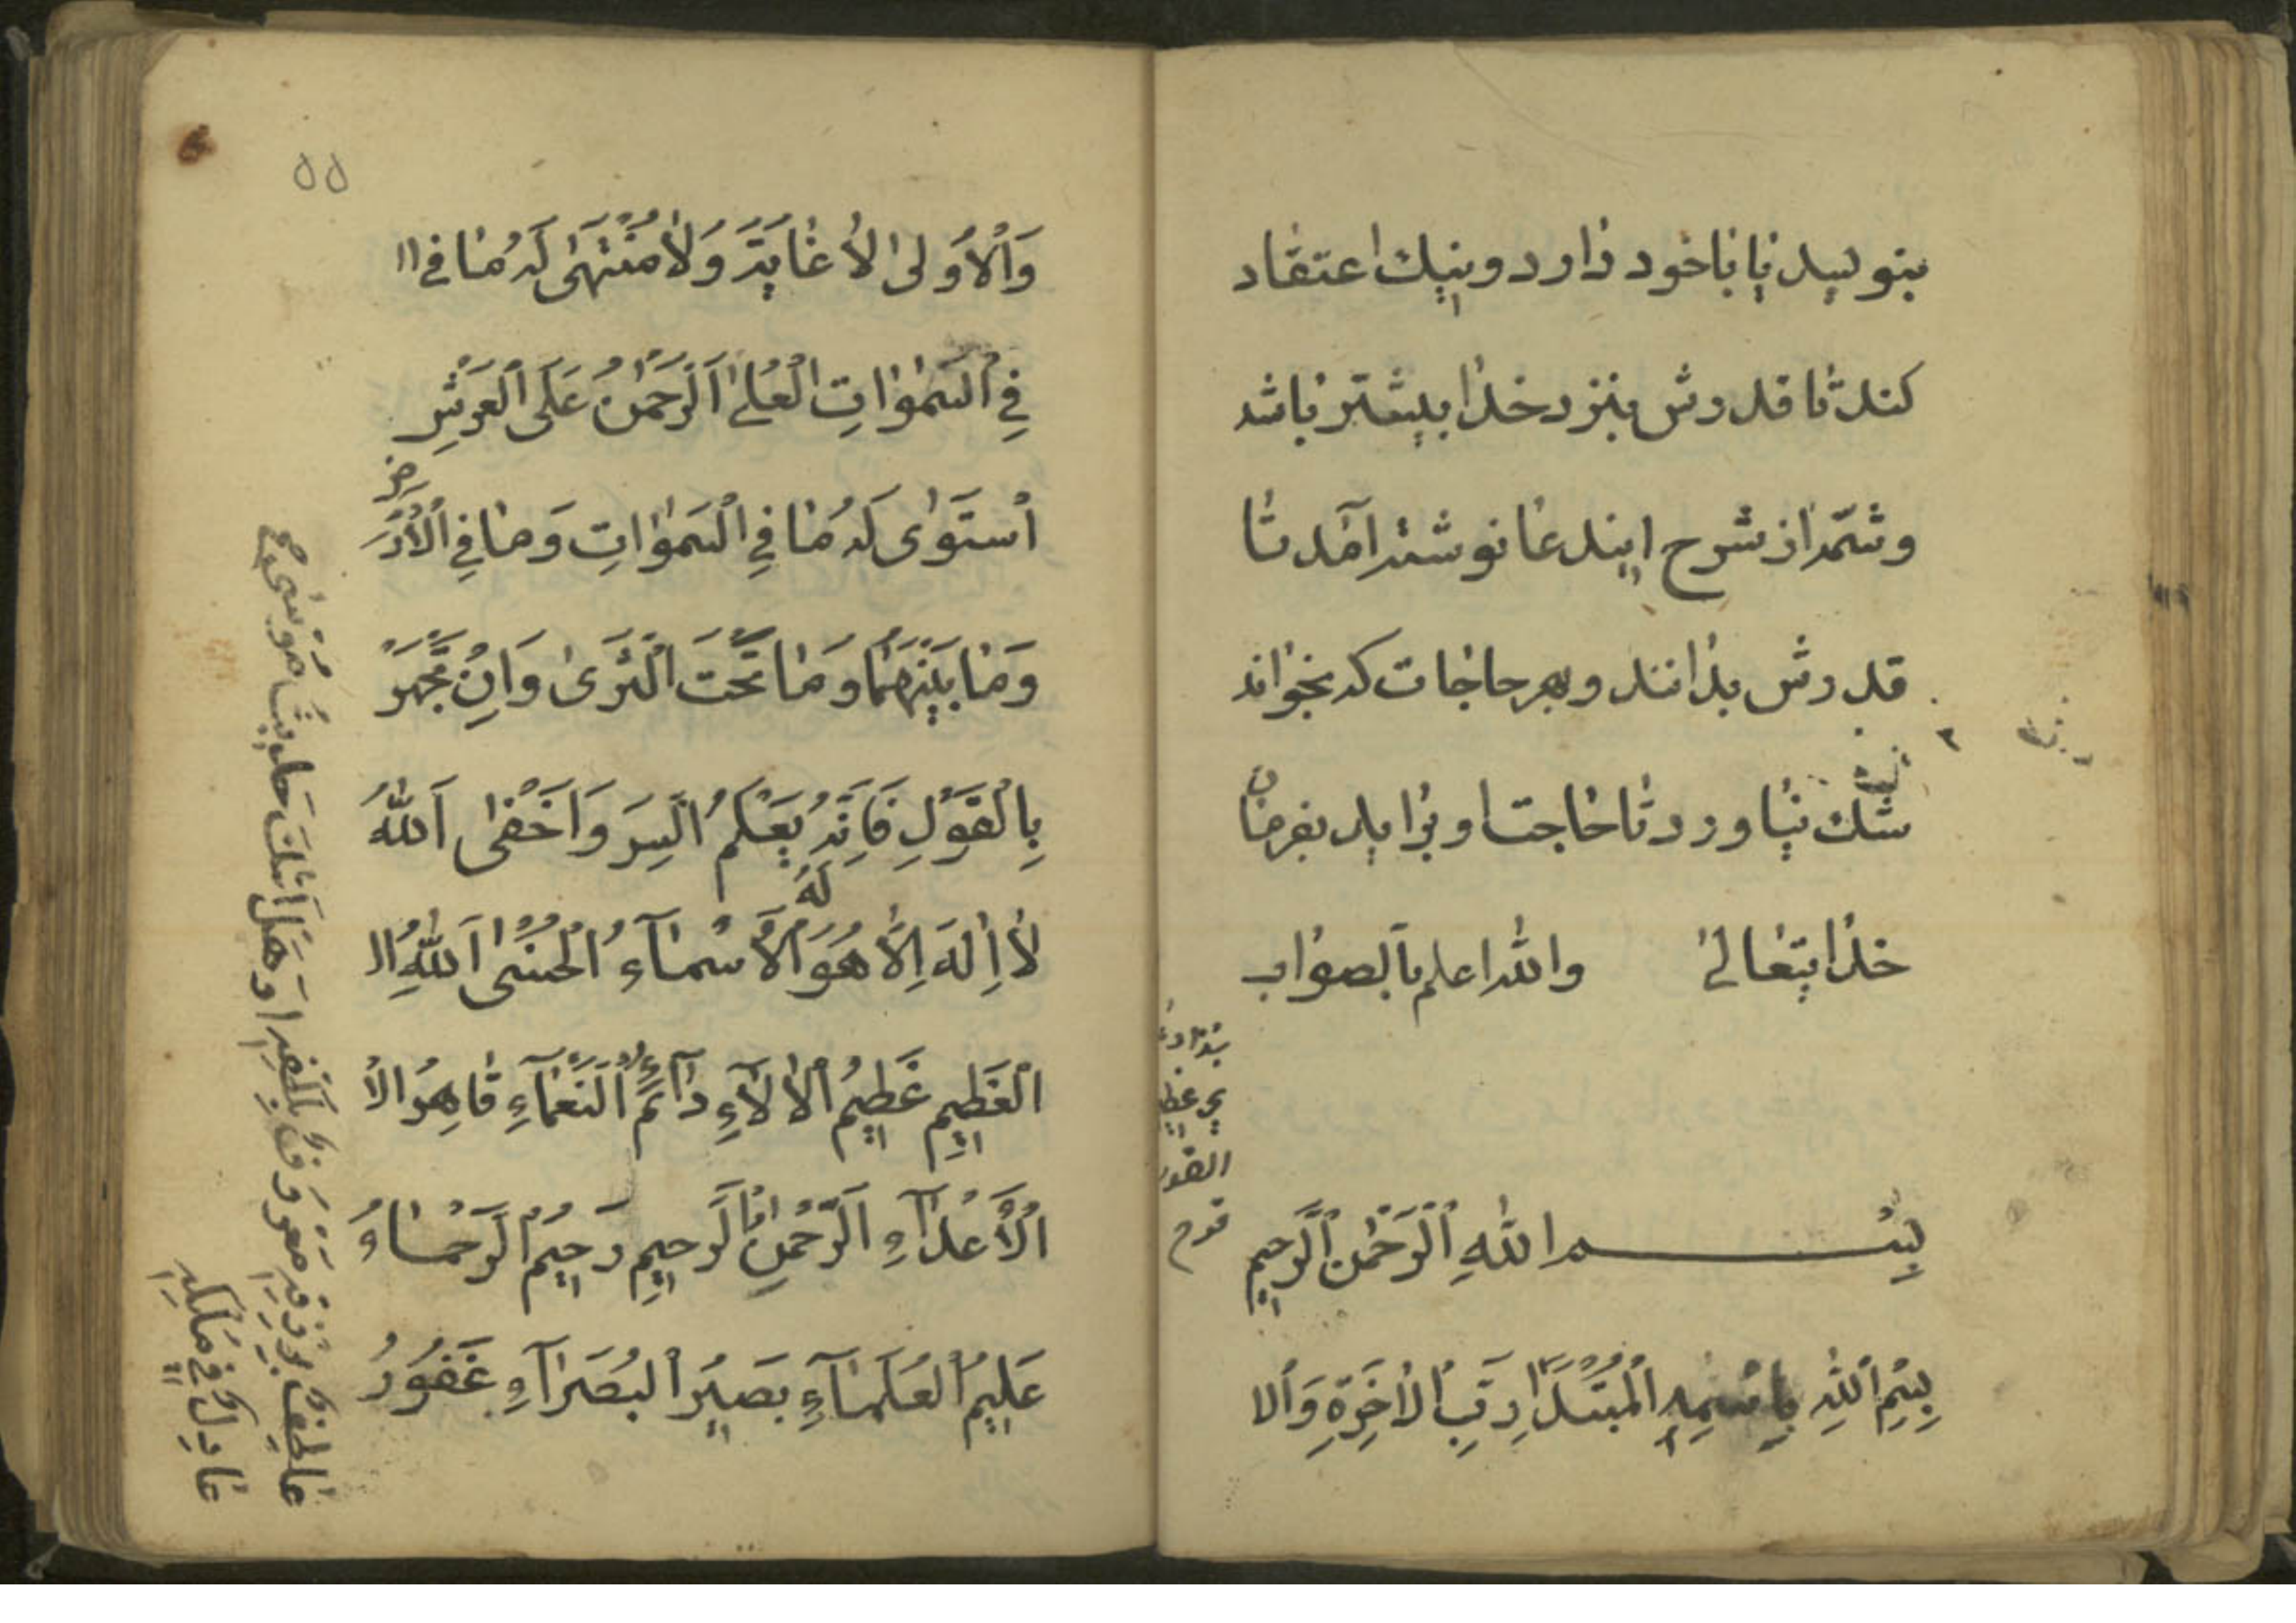 بنویسد یا با خود دارد و بنیك اعتقاد
کند تا قدرش بنزد خدا بیشتر باشد
و شمّهٔ از شرح این دعا نوشته آمد تا
قدرش بدانند و بهر حاجات که بخواند
شك نیاورد تا حاجت او برآید بفرمان
خدایتعالیٰ والله اعلم بالصواب
بِسْم اللهِ الرَّحْمٰنِ الرَّحِيمِ
بِسْمِ اللهِ بِاسْمِهِ الْمُبْتَدَا رَبِّ الْاٰخِرَةِ وَالا
٥٥
وَالْأُولىٰ لَا غَايَةَ وَلَا مُنْتَهىٰ لَهُ مَا فِي ال
فِي السَّمٰوَاتِ الْعُلىٰ اَلرَّحْمٰنُ عَلَى الْعَرْشِ
اسْتَوىٰ لَهُ مَا فِي السَّمٰوَاتِ وَمَا فِي الْأَرْضِ
وَمَا بَيْنَهُمَا وَمَا تَحْتَ الثَّرىٰ وَاِنْ تَجْهَرْ
بِالْقَوْلِ فَاِنَّهُ يَعْلَمُ السِّرَ وَاَخْفىٰ اَللهُ
لَا اِلٰهَ اِلَّا هُوَ لَهُ الْأَسْمَآءُ الْحُسْنىٰ اَللهُ ال
الْعَظِيمِ عَظِيمُ الْاٰلَآءِ دَآئِمُ النَّعْمَآءِ قَاهِرُ الا
الْأَعْدَآءِ الرَّحْمٰنِ الرَّحِيمِ رَحِيمُ الرُّحَمَاءُ
عَلِيمُ الْعُلَمَآءِ بَصِيرُ الْبُصَرَآءِ غَفُورُ
وَهَلْ اَتٰكَ حَدِيثُ مُوسٰى
عَادِلٌ فِي مُلْكِهِ